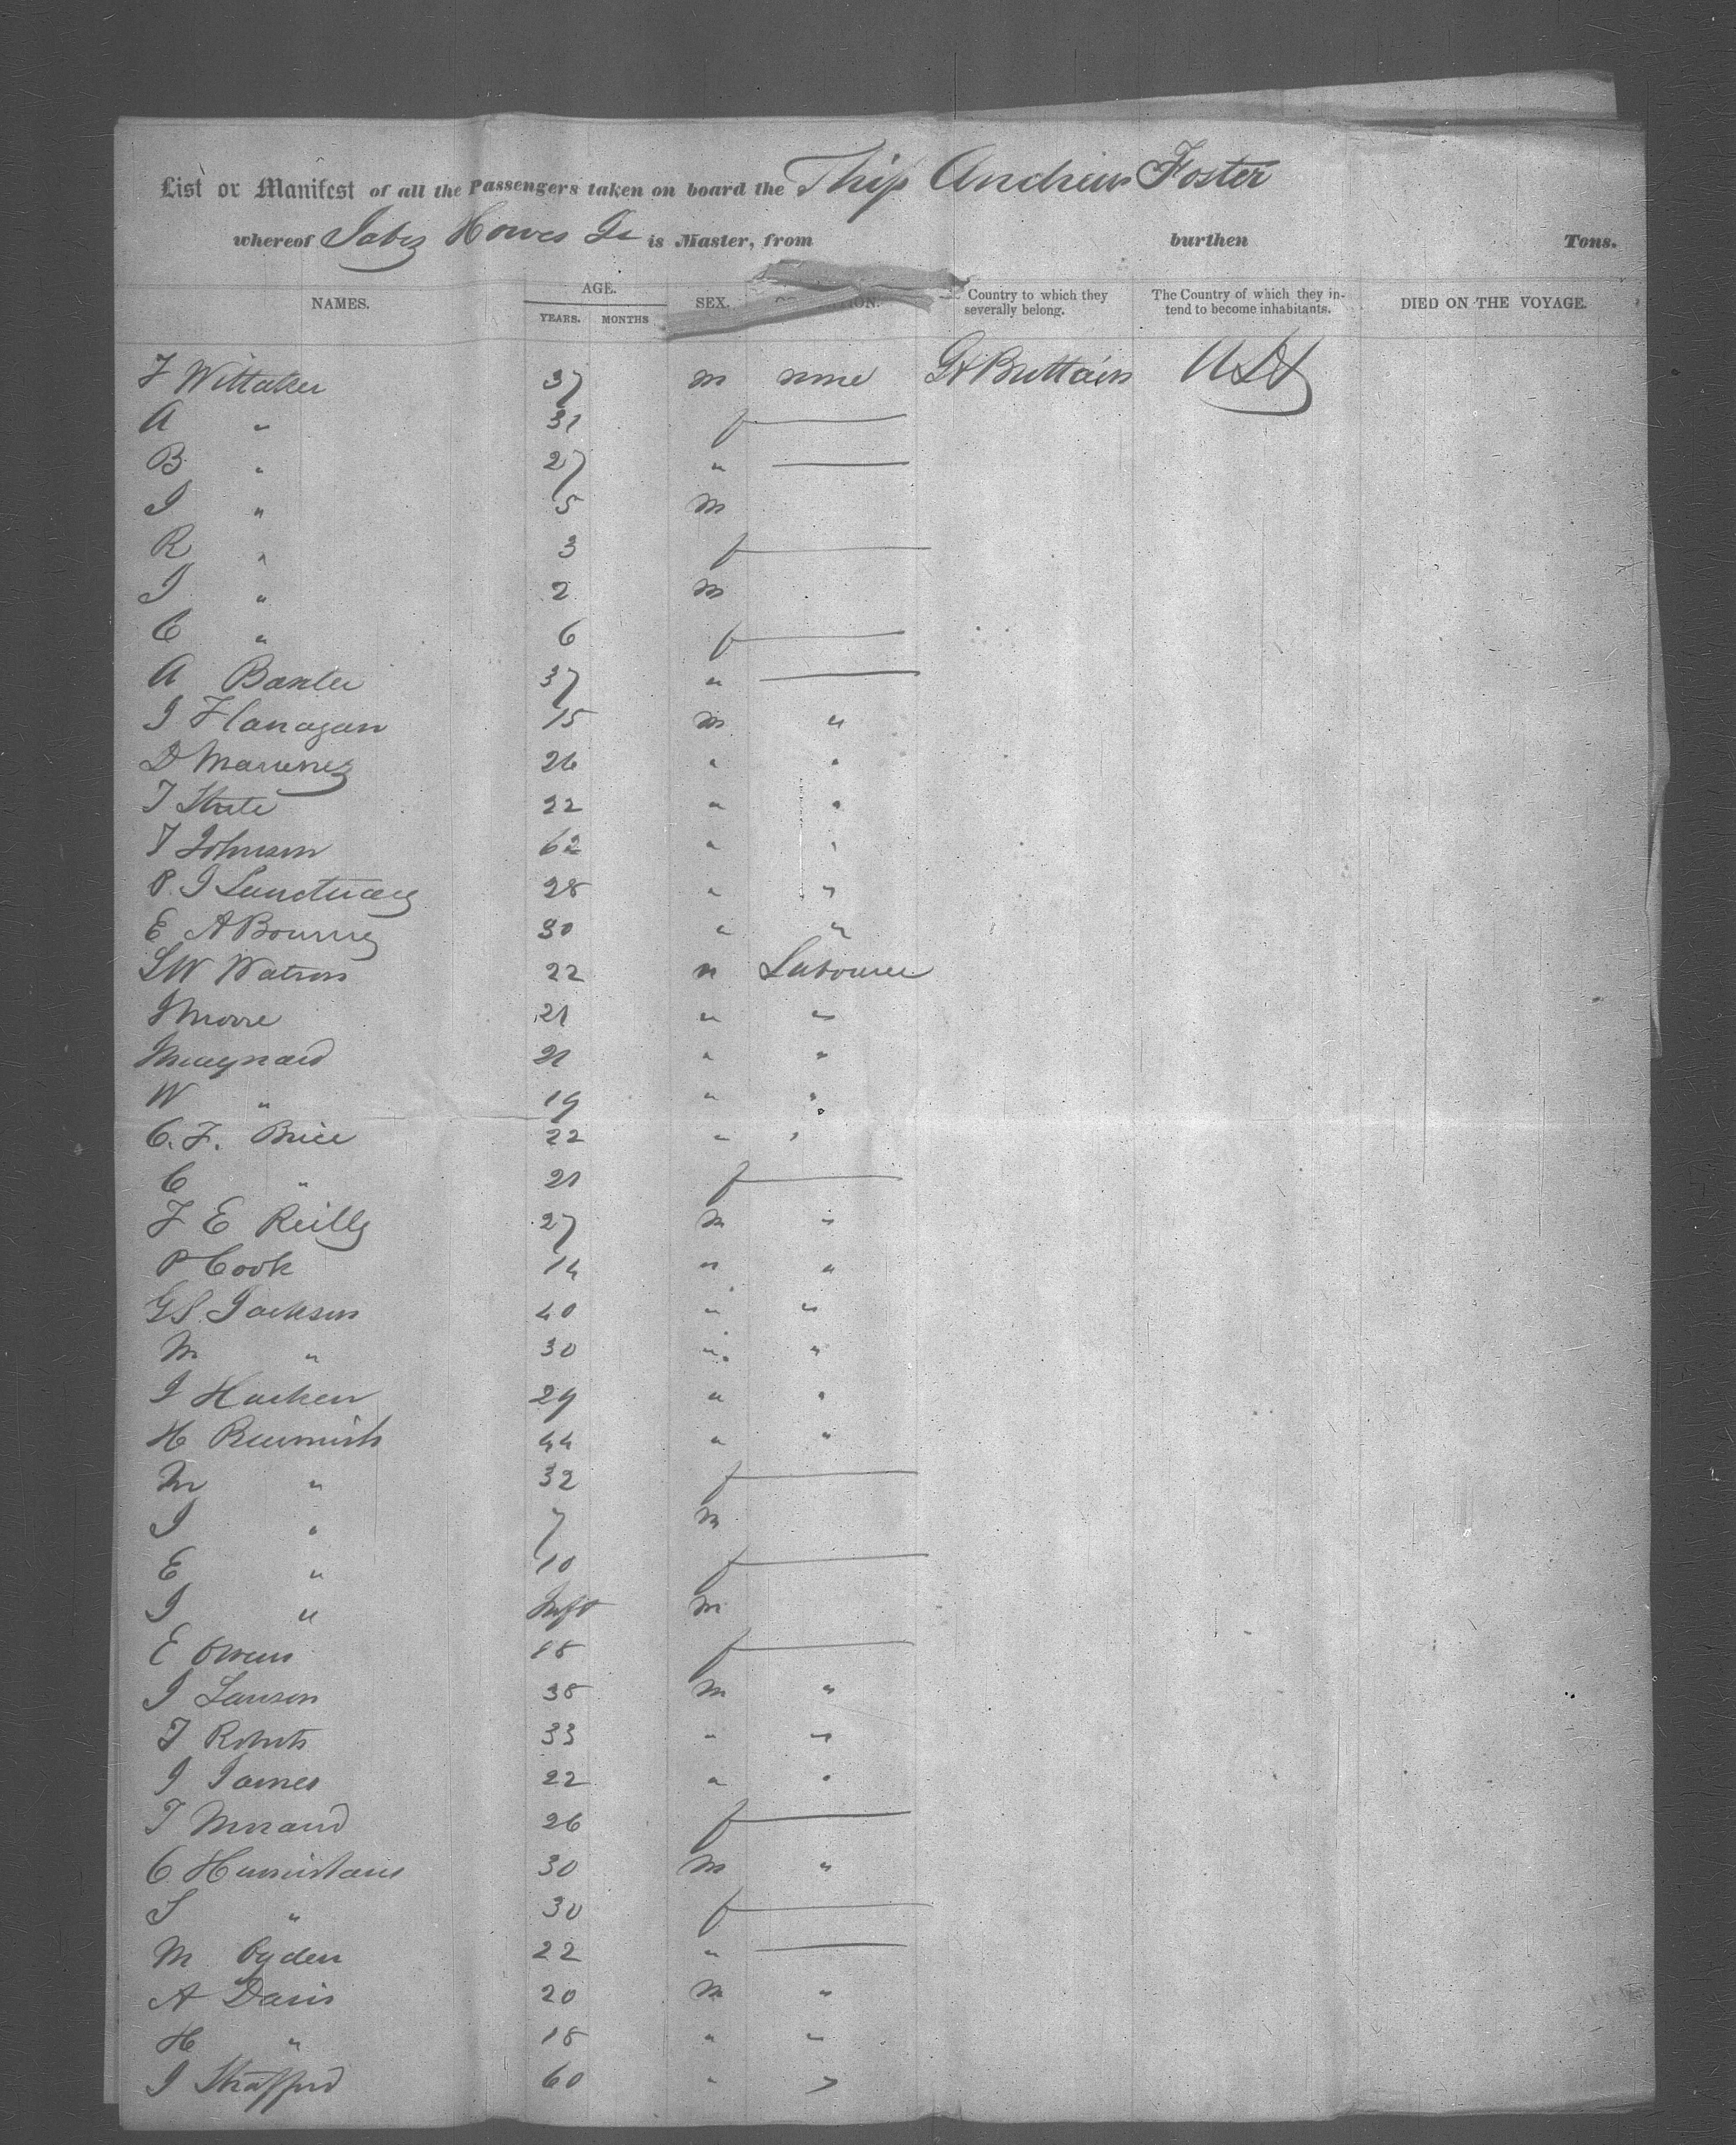 List or Manifest of all the Passengers taken on board the Ship Andrew Foster
whereof Jabez Howes Jr is Master, from burthen Tons.
NAMES. AGE. YEARS. MONTHS SEX. Country to which they severally belong. The Country of which they intend to become inhabitants. DIED ON THE VOYAGE.
F Wittaker 37 m none Gt Brittain USA
A " 31 f
B " 27 "
J " 5 m
R " 3 f
J " 2 m
C " 6 f
A Baxter 37 "
J Flanagan 15 m "
D 26 " "
T 22 " "
T Johnson 62 " "
P. J Sanctuary 28 " "
E A Bourne 30 " "
S W Watson 22 " Labourer
J Moore 21 " "
J Maynard 21 " "
W " 19 " "
C. F. Brice 22 " "
C " 21 f
F E Reilly 27 m "
P Cook 14 " "
G S. Jackson 40 " "
M " 30 " "
J Harken 29 " "
H 44 " "
M " 32 f
J " 7 m
E " 10 f
J " Inft m
E Owens 18 f
J Lawson 38 m "
T Roberts 33 " "
J James 22 " "
T 26 f
C. 30 m "
S " 30 f
M Ogden 22 "
A Davis 20 m "
H " 18 " "
J Strafford 60 " "